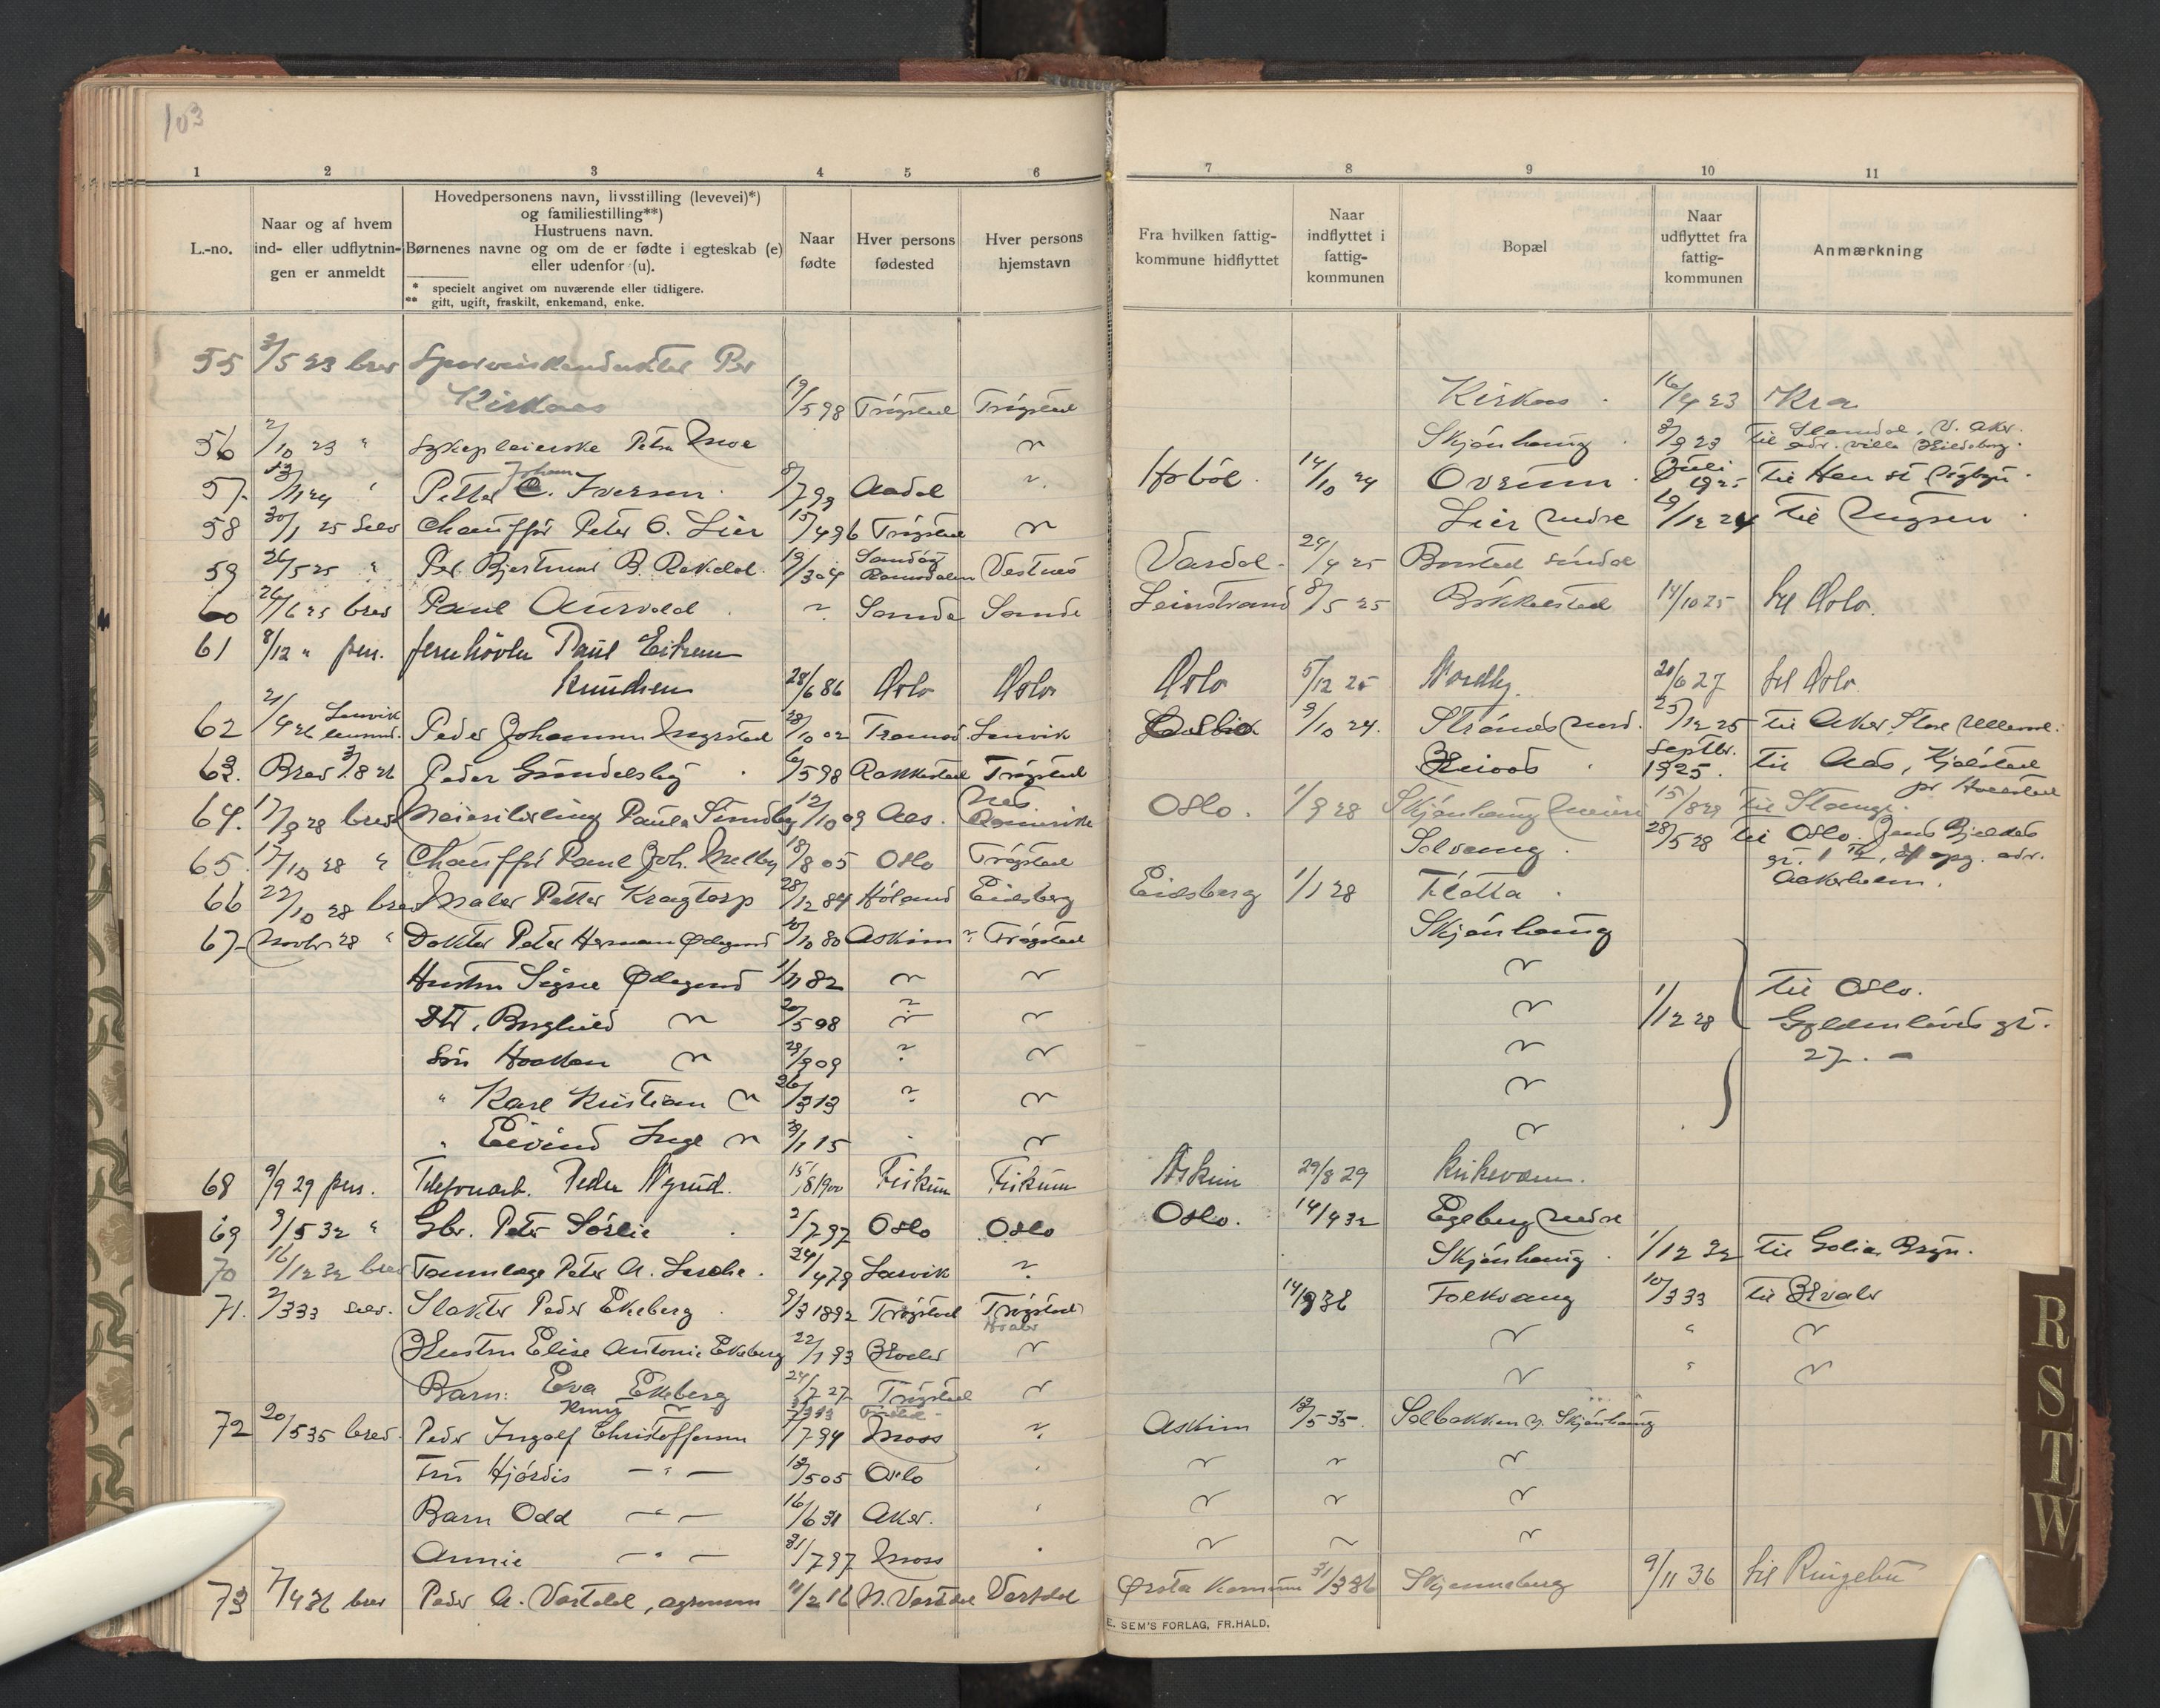 103
1 2 3 4 5 6 7 8 9 10 11
L.-no.
Naar og af hvem
ind- eller udflytnin-
gen er anmeldt
Hovedpersonens navn, livsstilling (levevei)*)
og familiestilling**)
Hustruens navn.
Børnenes navne og om de er fødte i egteskab (e)
eller udenfor (u).
* specielt angivet om nuværende eller tidligere.
** gift, ugift, fraskilt, enkemand, enke.
Naar
fødte
Hver persons
fødested
Hver persons
hjemstavn
Fra hvilken fattig-
kommune hidflyttet
Naar
indflyttet i
fattig-
kommunen
Bopæl
Naar
udflyttet fra
fattig-
kommunen
Anmærkning
55 3/5 23 brev Per
Kirkaas 19/5 98 Trøgstad Trøgstad Kirkaas 16/4 23 Kra
56 2/10 23 " Sykepleierske Petra Moe Skjønhaug 3/9 23 Til V. Aker.
adr. Villa
Johan
57. Petter C. Iversen 8/7 99 Aadal Hobøl 14/10 24 Ovrum Juli 1925 Til Hen st
58 30/1 25 Selv Chauffør Peter O. Lier 15/4 96 Trøgstad Lier nedre 19/12 24 Til Mysen
59 26/5 25 " Per B. Rekdal 19/3 04 Romsdalen Vestnes Vardal 24/4 25 Borstad søndre
60 26/6 25 brev Paul Aurvold Sande Sande Leinstrand 8/5 25 Bøkkelstad 14/10 25 til Oslo.
61 8/12 " pers. Jernhøvler Paul Eikrem
Knudsen 28/6 86 Oslo Oslo Oslo 5/12 25 Nordby. 20/6 27 til Oslo.
62 21/4 26 Lenvik Peder Johannes Myrstad 28/10 02 Tromsø Lenvik 9/10 24. Strønes nord. 23/12 25 til Aker, Store Ullevaal.
63. Brev 3/8 26 Peder Grøndelsby 6/5 98 Rakkestad Trøgstad Septbr. 1925. til Aas, Kjølstad
64. 17/9 28 brev Meierilærling Paula Sundby 12/10 09 Aas. Nes. Romerike Oslo. 1/9 28 Skjønhaug Meieri 15/8 29 Til Stange.
65. 17/10 28 " Chauffør Paul Joh. Melby 18/8 05 Oslo Trøgstad Solvang. 28/5 28 til Oslo. Jens Bjelkes
gt. 1
66 22/10 28 brev Maler Petter Kragtorp 28/12 84 Høland Eidsberg Eidsberg 1/1 28 Filotta
67. Novbr. 28 " Doktor Peter Herman Ødegaard /10 80 Askim Trøgstad Skjønhaug
Hustru Signe Ødegaard 1/11 82
Dtr. Borghild 20/5 98 1/12 28 Til Oslo.
Gyldenløves gt.
27. –
Søn Haakon 29/3 09
" Karl Kristian 26/3 13
" Eivind Inge 3/1 15
68 9/9 29 pers. Telefonarb. Peder Nyrud. 15/8 1900 Fiskum Fiskum Askim 29/8 29 Kirkevarn.
69 9/5 32 " Gbr. Peter Sørlie 2/7 97 Oslo Oslo Oslo. 14/4 32 Egeberg nedre
70 16/12 32 brev Tannlæge Peter A. Lerche. 24/4 79 Larvik ? Skjønhaug 1/12 32 til Golia Bryn.
71. 2/3 33 selv. Slakter Peder Ekeberg 9/3 1892 Trøgstad Trøgstad
Hvaler 14/9 36 Folkvang 10/3 33 til Hvaler
Hustru Elise Antonie Ekeberg 22/1 93 Hvaler
Barn: Eva Ekeberg 24/7 27 Trøgstad
72 20/5 35 brev. Peder Ingolf Christoffersen 1/7 94 Moss Askim 13/5 35. Solbakken v. Skjønhaug
Fru Hjørdis — " — 13/5 05 Oslo
Barn Odd — " — 16/6 31 Aker.
Annie — " — 31/7 97 Moss
73 7/4 36 brev Peder A. Vartdal, agronom 11/2 16 N. Vartdal Vartdal Ørsta Kommune 31/3 36 Skjenneberg 9/11 36 til Ringebu
E. SEM'S FORLAG, FR.HALD.
R
S
T
W